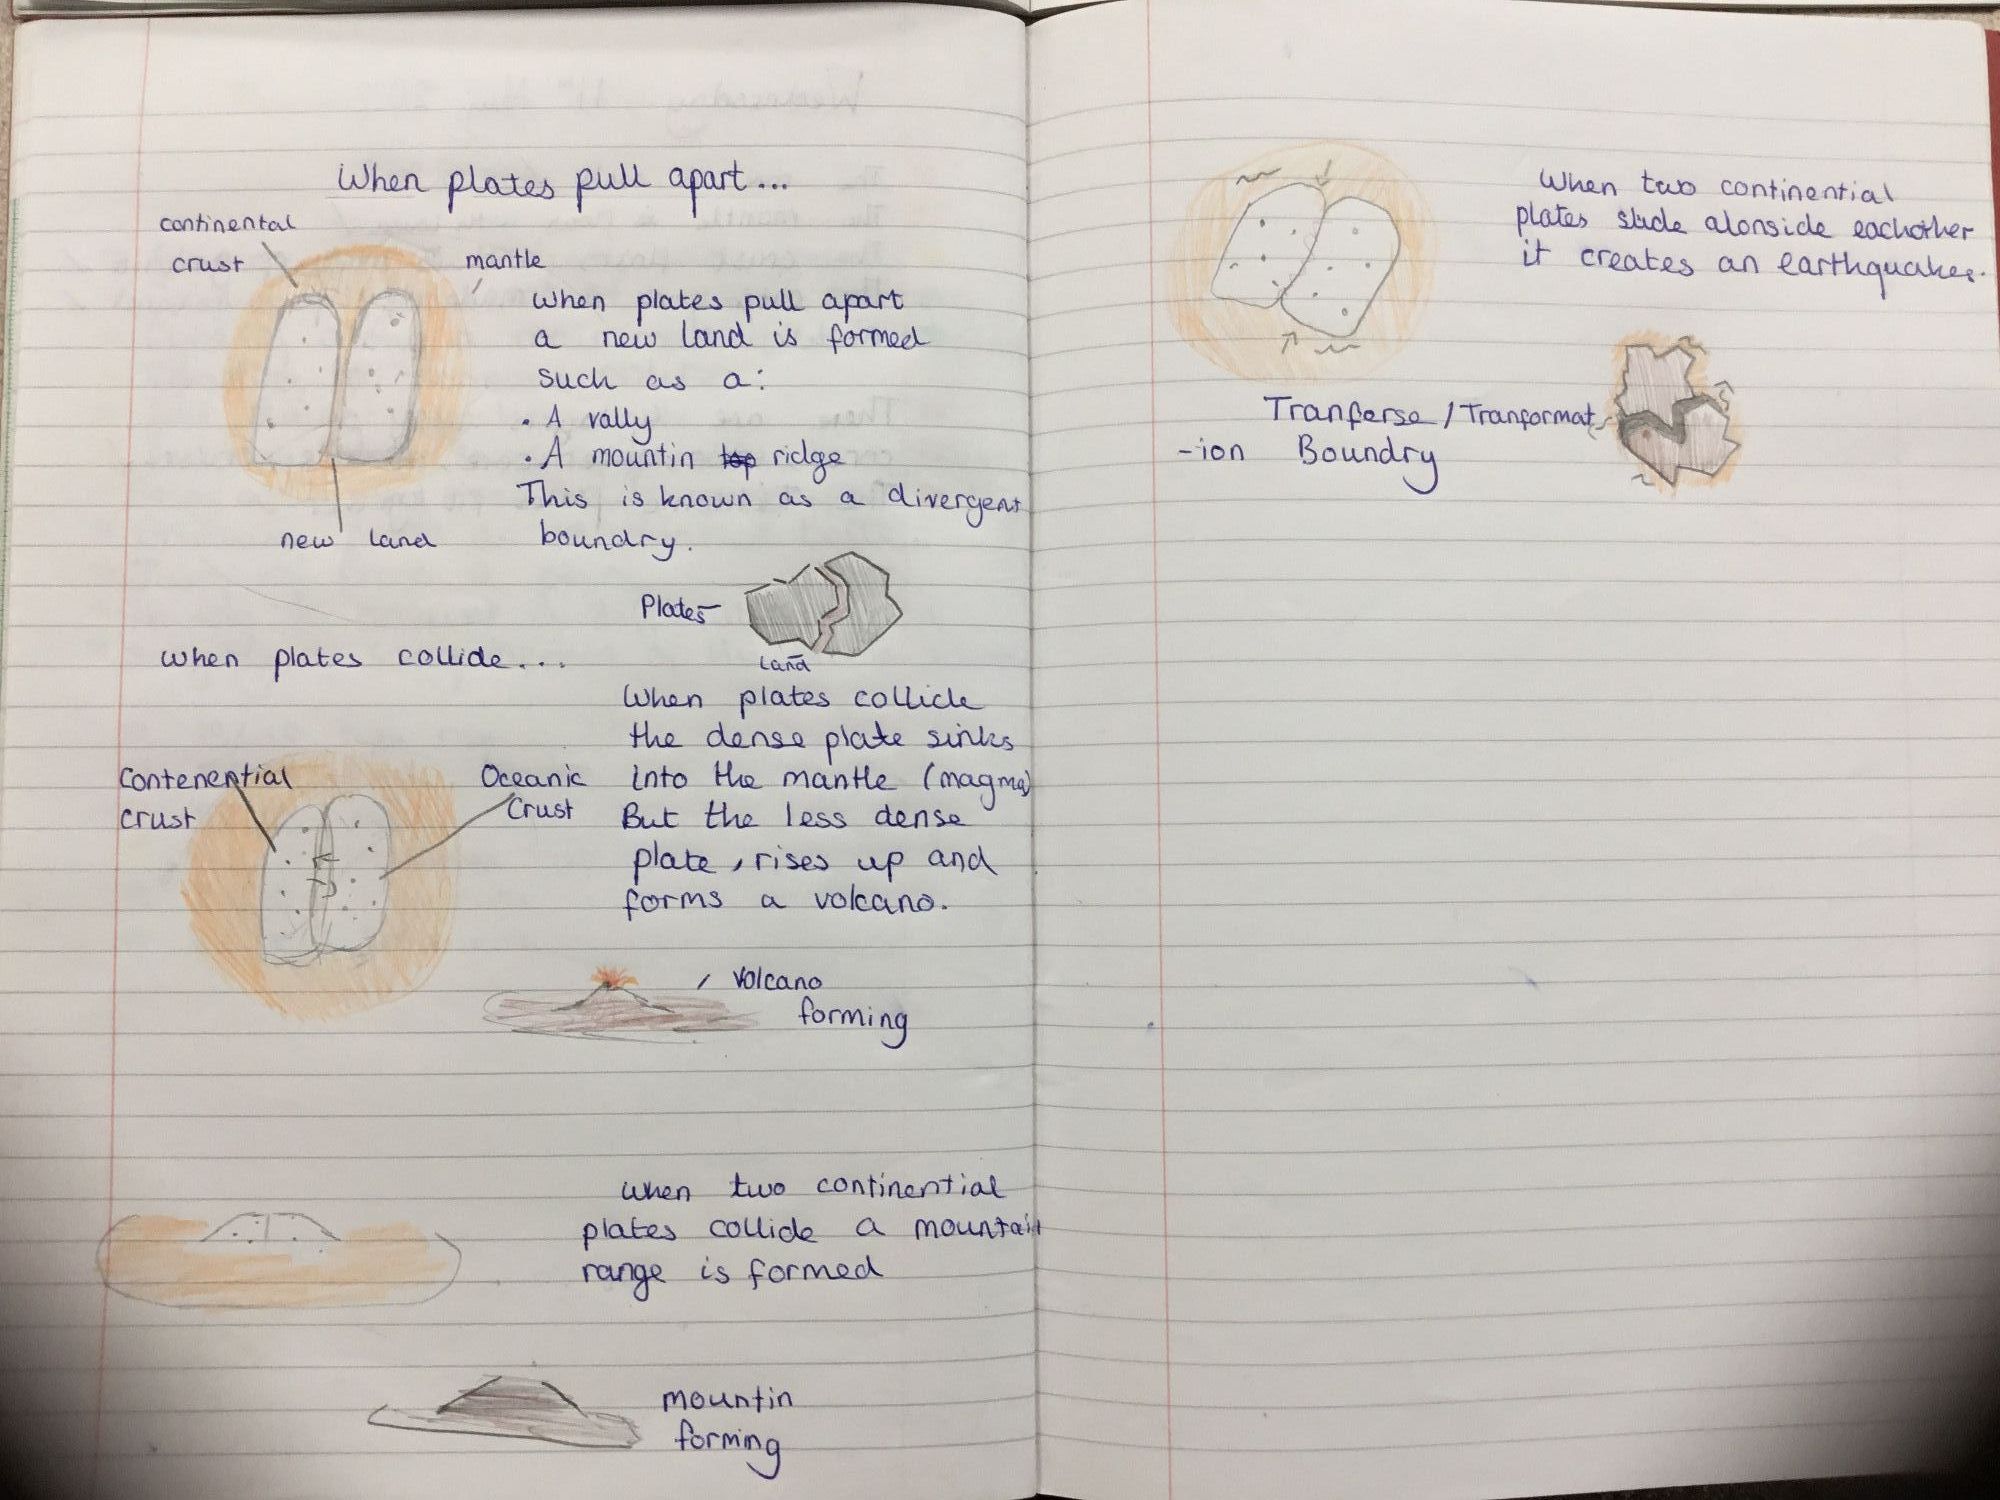 When plates pull apart...
continental
crust
mantle
When plates pull apart
a new land is formed
such as a:
• A vally
• A mountin top ridge
This is known as a divergent
boundry.
new land
Plates
Land
when plates collide...
When plates collide
the dense plate sinks
into the mantle (magma)
But the less dense
plate, rises up and
forms a volcano.
Contenential
crust
Oceanic
Crust
Volcano
forming
when two continential
plates collide a mountain
range is formed
mountin
forming
When two continential
plates slide alonside eachother
it creates an earthquake.
Tranferse / Tranformat
-ion Boundry